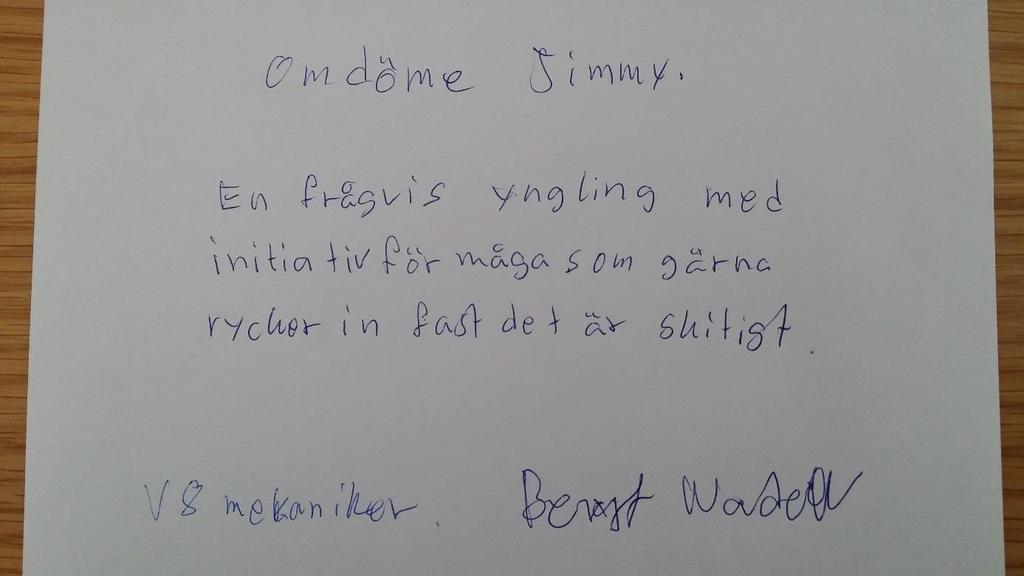 Omdöme Jimmy.
En frågvis yngling med
initiativförmåga som gärna
rycker in fast det är skitigt.
V8 mekaniker. Bengt